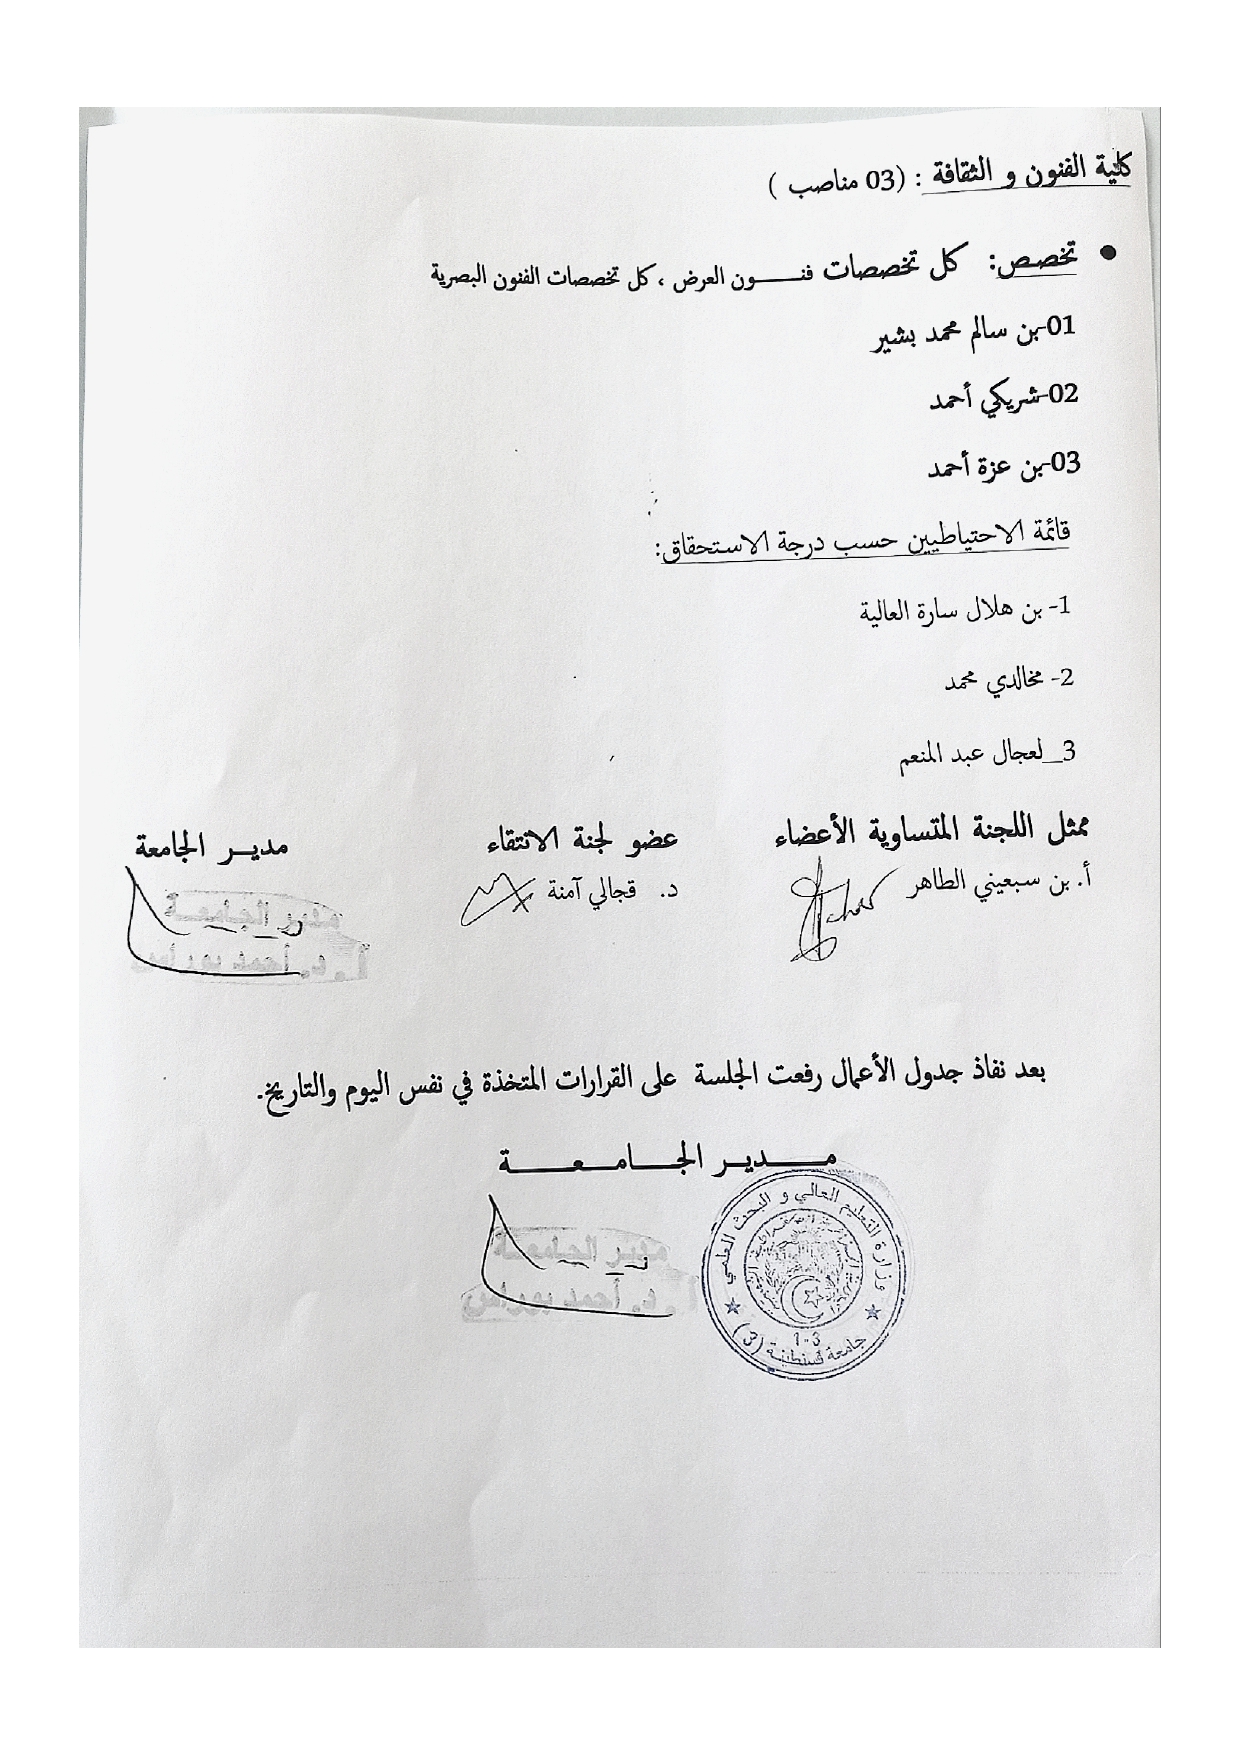 كلية الفنون و الثقافة : (03 مناصب )
● تخصص: كل تخصصات فنــــون العرض ، كل تخصصات الفنون البصرية
01-بن سالم محمد بشير
02-شريكي أحمد
03-بن عزة أحمد
قائمة الاحتياطيين حسب درجة الاستحقاق:
1- بن هلال سارة العالية
2- مخالدي محمد
3_لعجال عبد المنعم
ممثل اللجنة المتساوية الأعضاء عضو لجنة الانتقاء مديـر الجامعة
أ. بن سبعيني الطاهر د. قجالي آمنة
مدير الجامعـة
أ.د. أحمد بوراس
بعد نفاذ جدول الأعمال رفعت الجلسة على القرارات المتخذة في نفس اليوم والتاريخ.
مـــديـر الجـــامـــعـــة
مدير الجامعـة
أ.د. أحمد بوراس
وزارة التعليم العالي و البحث العلمي
1-3
جامعة قسنطينة (3)